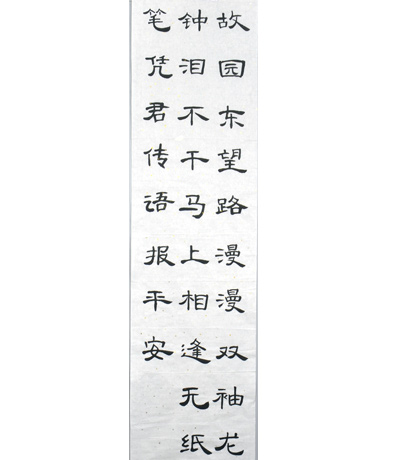 故园东望路漫漫双袖龙
钟泪不干马上相逢无纸
笔凭君传语报平安